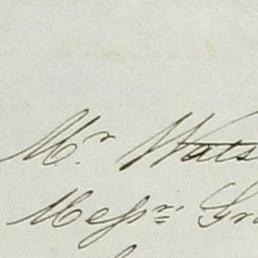 Mr. Wats
Messrs. Gr